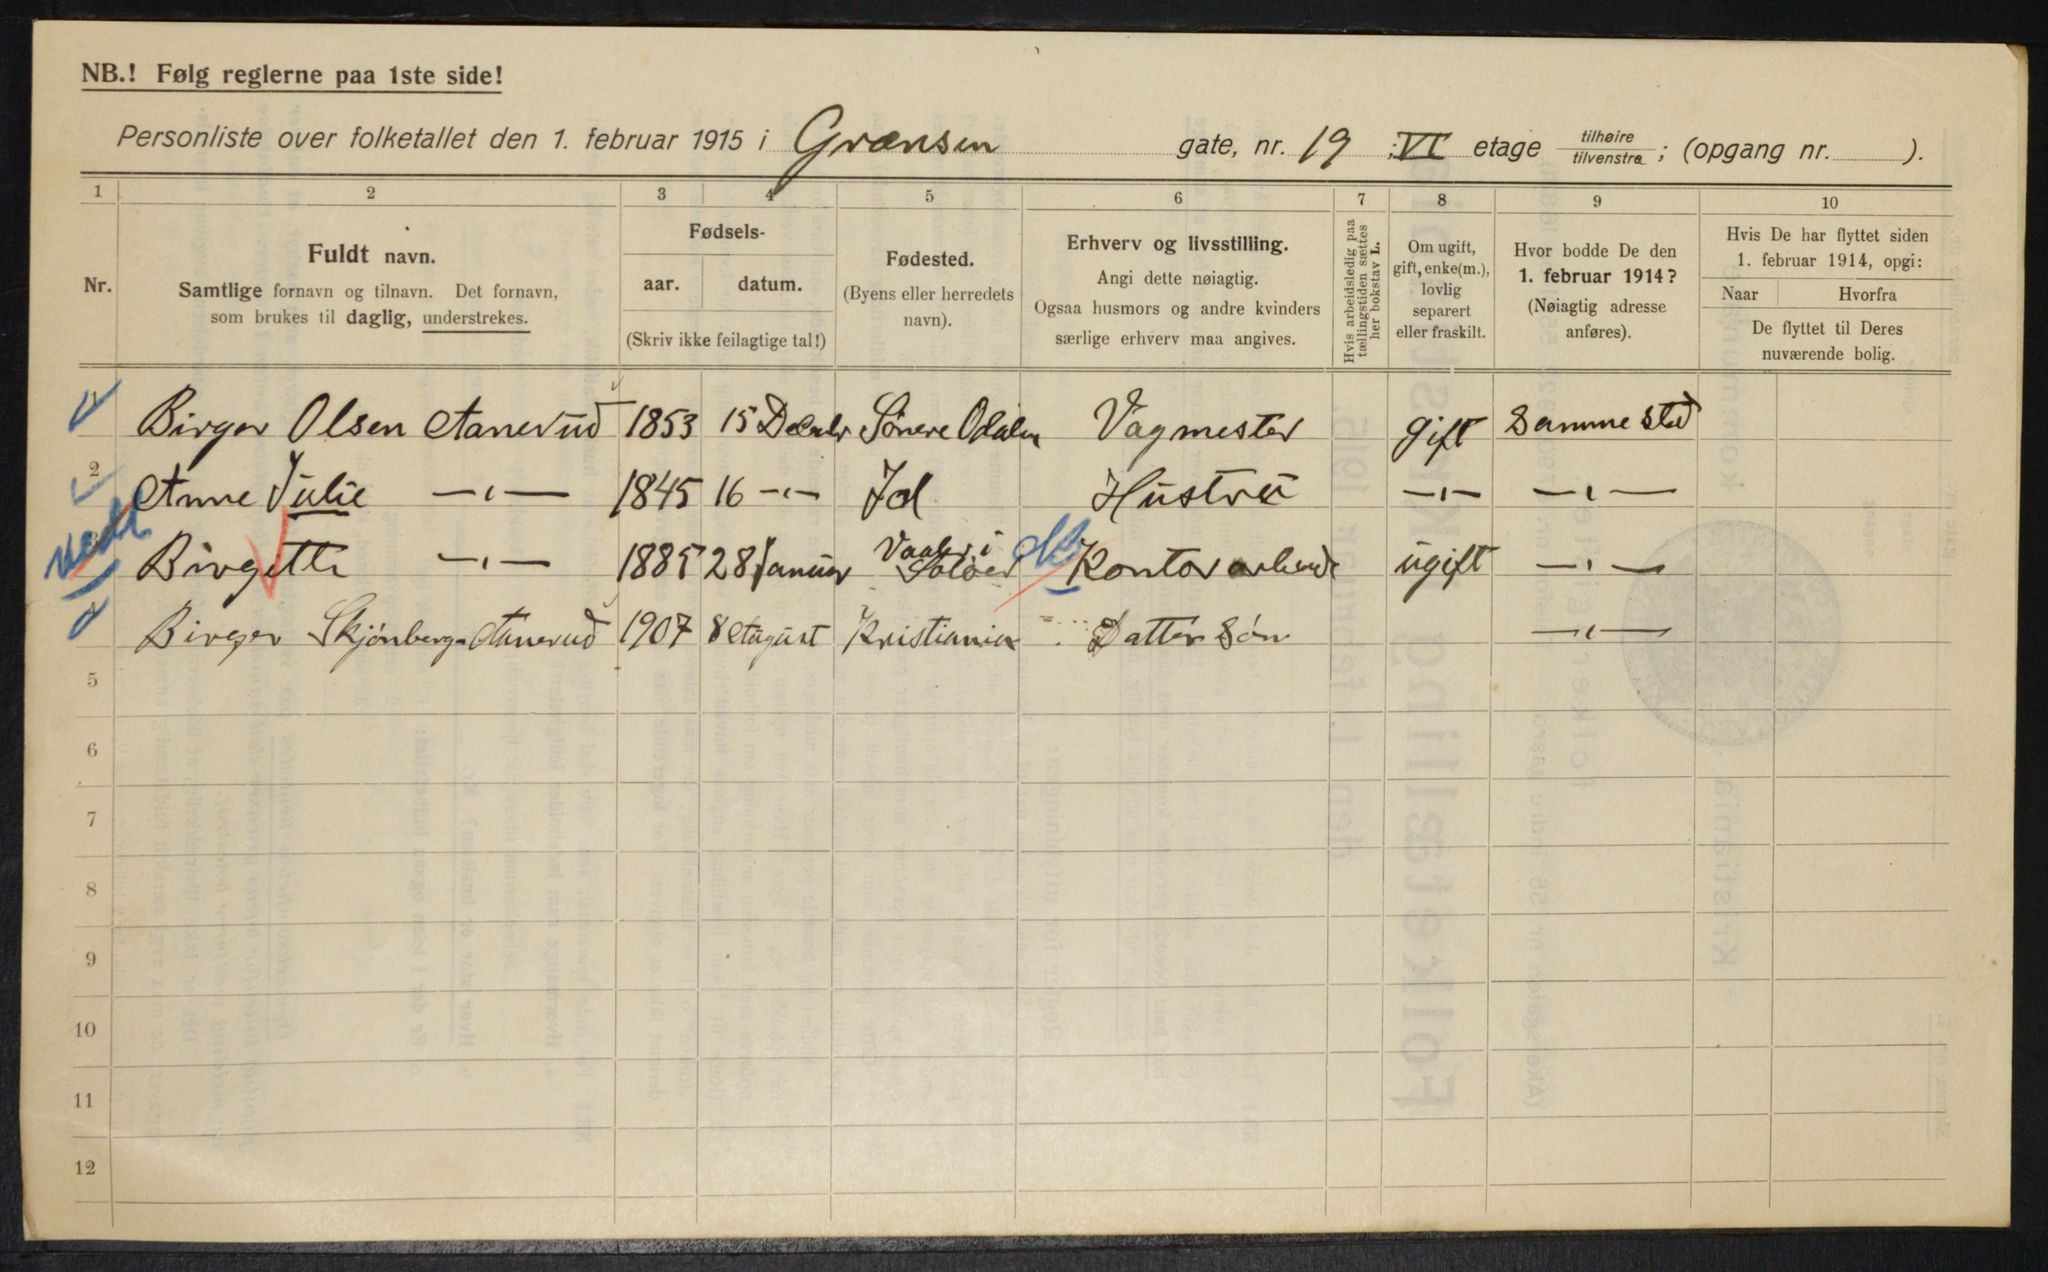 NB.! Følg reglerne paa 1ste side!
Personliste over folketallet den 1. februar 1915 i Grænsen gate, nr. 19 ; VI etage tilhøire/tilvenstre ; (opgang nr. ).
1 2 3 4 5 6 7 8 9 10
Nr.
Fuldt navn.
Samtlige fornavn og tilnavn. Det fornavn,
som brukes til daglig, understrekes.
Fødsels-
aar. datum.
(Skriv ikke feilagtige tal!)
Fødested.
(Byens eller herredets
navn).
Erhverv og livsstilling.
Angi dette nøiagtig.
Ogsaa husmors og andre kvinders
særlige erhverv maa angives.
Hvis arbeidsledig paa
tællingstiden sættes
her bokstav L.
Om ugift,
gift, enke(m.),
lovlig
separert
eller fraskilt.
Hvor bodde De den
1. februar 1914?
(Nøiagtig adresse
anføres).
Hvis De har flyttet siden
1. februar 1914, opgi:
Naar Hvorfra
De flyttet til Deres
nuværende bolig.
Birger Olsen Aanerud 1853 15 Søndre Odalen Vagmester gift Samme sted
2 Anne Julie —〃— 1845 16 —〃— Id Hustru —〃— —〃—
Birgitte —〃— 1885 28 Januar Vaaler i Soløer Kontor ugift —〃—
Birger Skjønberg-Aanerud 1907 8 August Kristiania Datter Søn —〃—
5
6
7
8
9
10
11
12